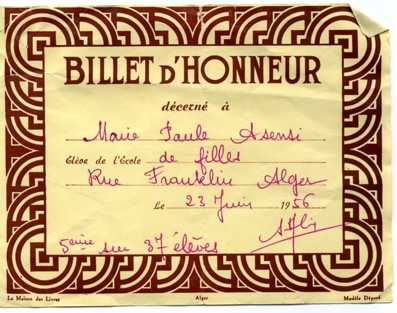 BILLET D'HONNEUR
décerné à
Marie Paule Asensi
Elève de l'Ecole de filles
Rue Franklin Alger
Le 23 Juin 1956
5eme sur 37 élèves
La Maison des Livres Alger Modèle Déposé